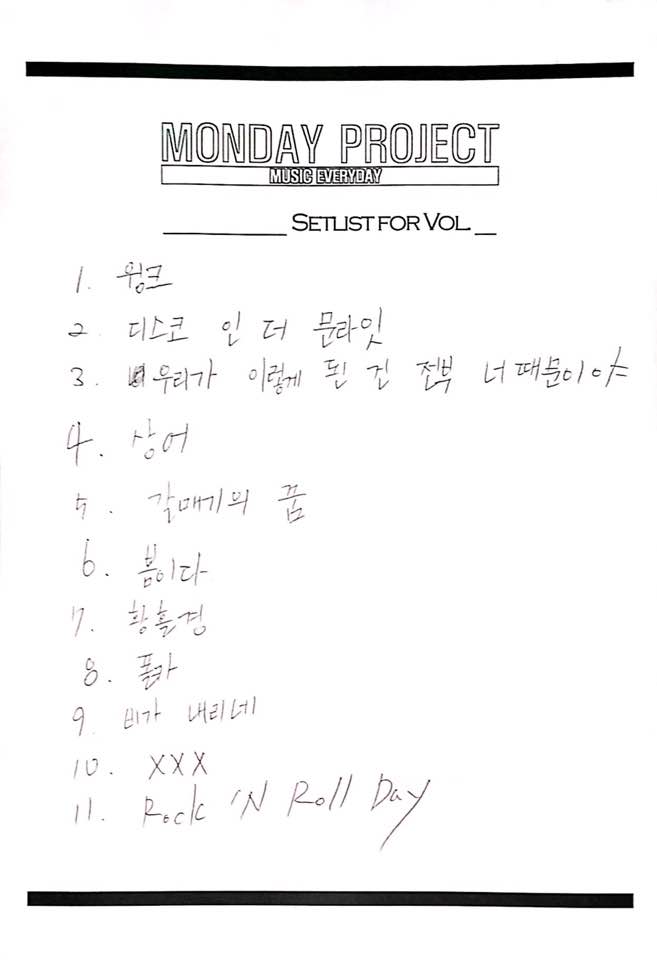 MONDAY PROJECT
MUSIC EVERYDAY
SETLIST FOR VOL.
1. 윙크
2. 디스코 인 더 문라잇
3. 우리가 이렇게 된 건 전부 너때문이야
4. 상어
5. 갈매기의 꿈
6. 봄이다
7. 황홀경
8. 폴카
9. 비가 내리네
10. XXX
11. Rock 'N Roll Day